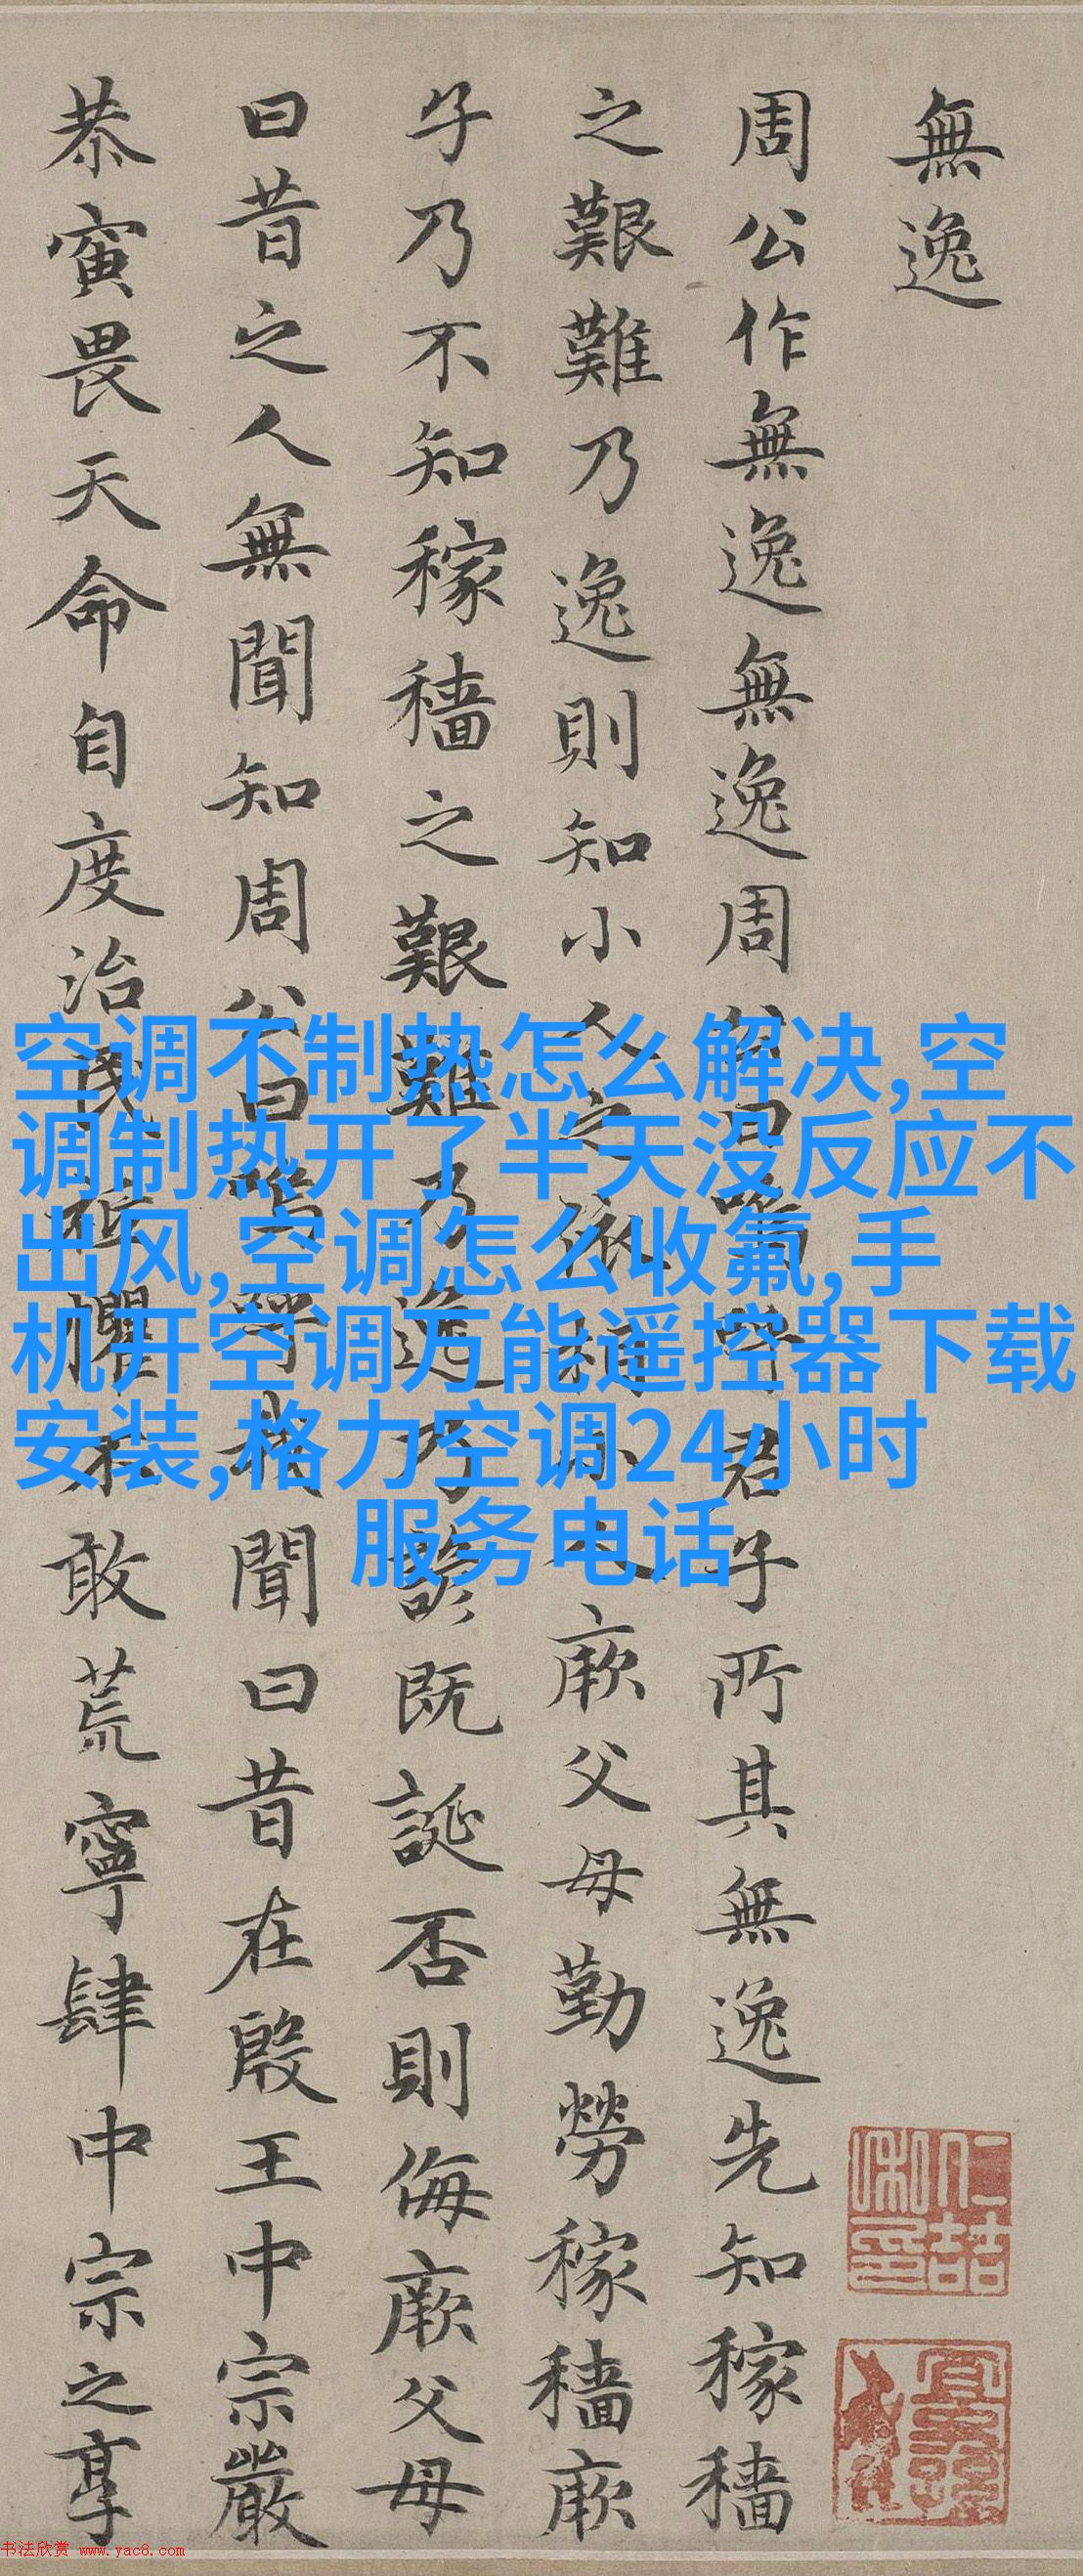 無逸
周公作無逸無逸周公曰嗚呼君子所其無逸先知稼穡
之艱難乃逸則知小人之依相小人厥父母勤勞稼穡厥
子乃不知稼穡之艱難乃逸乃諺既誕否則侮厥父母
曰昔之人無聞知周公曰嗚呼我聞曰昔在殷王中宗嚴
恭寅畏天命自度治民祗懼不敢荒寧肆中宗之享
空调不制热怎么解决,空
调制热开了半天没反应不
出风,空调怎么收氟,手
机开空调万能遥控器下载
安装,格力空调24小时
服务电话
书法欣赏 www.yac8.com